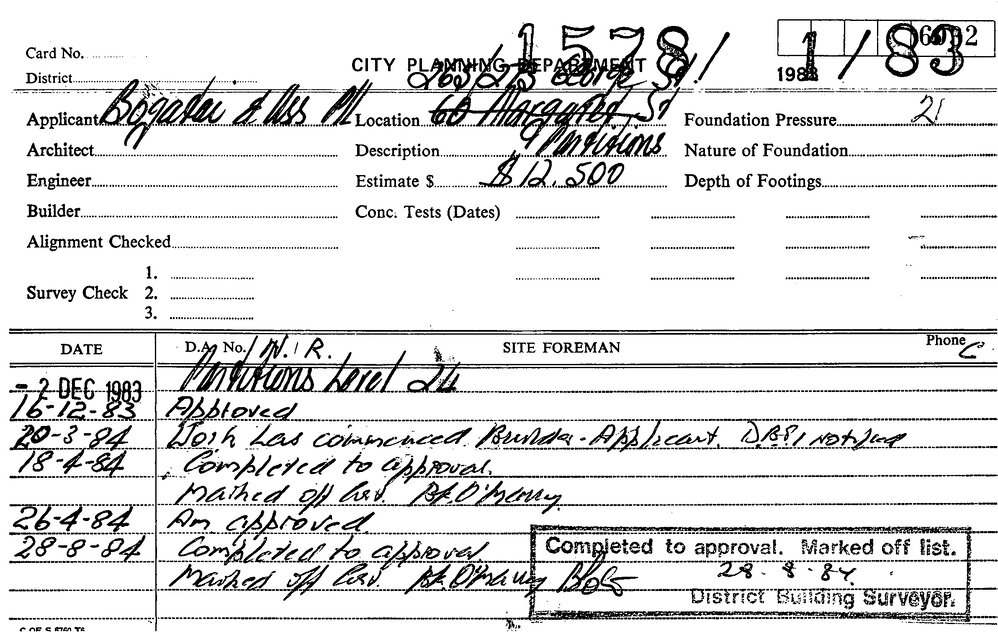 1578 1/83
6032
Card No.
CITY PLANNING DEPARTMENT
1983
District
Applicant Bogatai & Ass P/L Location 60 Margaret St Foundation Pressure 21
Architect Description Partitions Nature of Foundation
Engineer Estimate $ $12.500 Depth of Footings
Builder Conc. Tests (Dates)
Alignment Checked
1.
Survey Check 2.
3.
DATE D.A. No. N.R. SITE FOREMAN Phone C
- 2 DEC 1983 Partitions Level 24
16-12-83 Approved
20-3-84 Work has commenced. Builder-Applicant. notified
18-4-84 Completed to approval.
Marked off
26-4-84 Am approved.
28-8-84 Completed to approval
Marked off
Completed to approval. Marked off list.
28.8.84.
District Building Surveyor.
C OF S 8760 T6